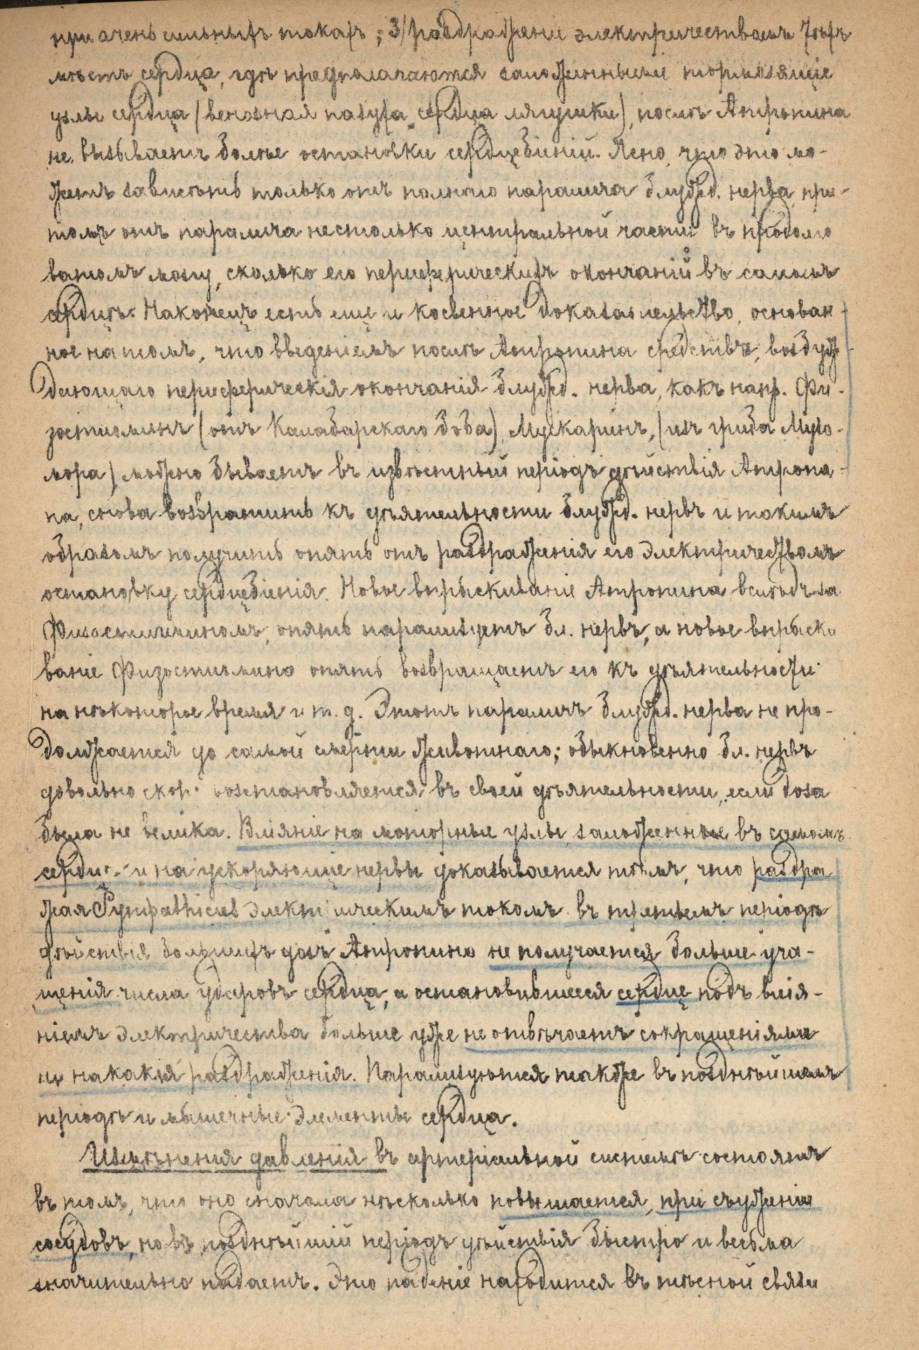 при очень сильныхъ токахъ; 3/ раздраженіе электричествомъ тѣхъ
мѣстъ сердца, гдѣ предполагаются заложенными тормозящіе
узлы сердца (венозная пазуха сердца лягушки), послѣ Атропина
не вызываетъ болѣе остановки сердцебіній. Ясно, что это мо-
жетъ зависѣть только отъ полнаго паралича блужд. нерва при-
томъ отъ паралича не столько центральной части въ продолго
ватомъ мозгу, сколько его периферическихъ окончаній въ самомъ
сердцѣ. Наконецъ есть еще и косвенное доказательство, основан
ное на томъ, что введеніемъ послѣ Атропина средствъ, возбуж
дающаго периферическія окончанія блужд. нерва, какъ напр. Фи-
зостигминъ (отъ Калабарскаго боба), Мускаринъ, (изъ гриба Мухо-
мора) можно бываетъ въ извѣстный періодъ дѣйствія Атропи-
на, снова возвратить къ дѣятельности блужд. нервъ и такимъ
образомъ получить опять отъ раздраженія его электричествомъ
остановку сердцебіенія. Новое впрыскиваніе Атропина вслѣдъ за
Физостигминомъ, опять парализуетъ бл. нервъ, а новое впрыски
ваніе Физостигмина опять возвращаетъ его къ дѣятельности
на нѣкоторое время и т. д. Этотъ параличъ блужд. нерва не про-
должается до самой смерти животнаго; обыкновенно бл. нервъ
довольно скоро возстановляется въ своей дѣятельности, если доза
была не велика. Вліяніе на моторные узлы, заложенные въ самомъ
сердцѣ и на ускоряющіе нервы доказывается тѣмъ, что раздра
жая Sympathicus электрическимъ токомъ въ третьемъ періодѣ
дѣйствія большихъ дозъ Атропина не получается больше уча-
щенія числа ударовъ сердца, а остановившееся сердце подъ влія-
ніемъ электричества больше уже не отвѣчаетъ сокращеніями
ни на какія раздраженія. Парализуются также въ позднѣйшемъ
періодѣ и мышечные элементы сердца.
Измѣненія давленія въ артеріальной системѣ состоятъ
въ томъ, что оно сначала нѣсколько повышается, при съуженіи
сосудовъ, но въ позднѣйшій періодъ дѣйствія быстро и весьма
значительно падаетъ. Это паденіе находится въ тѣсной связи